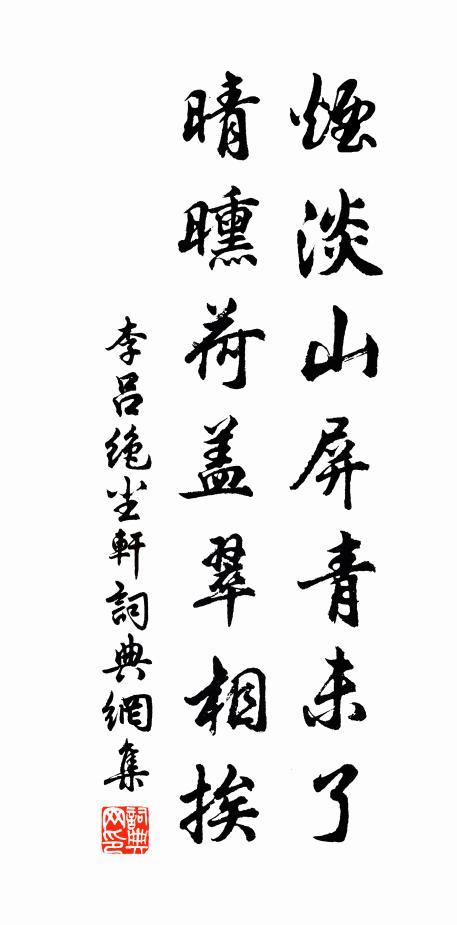 煙淡山屏青未了
晴曛荷盖翠相挨
李吕絶尘軒詞典網集
詞典网印